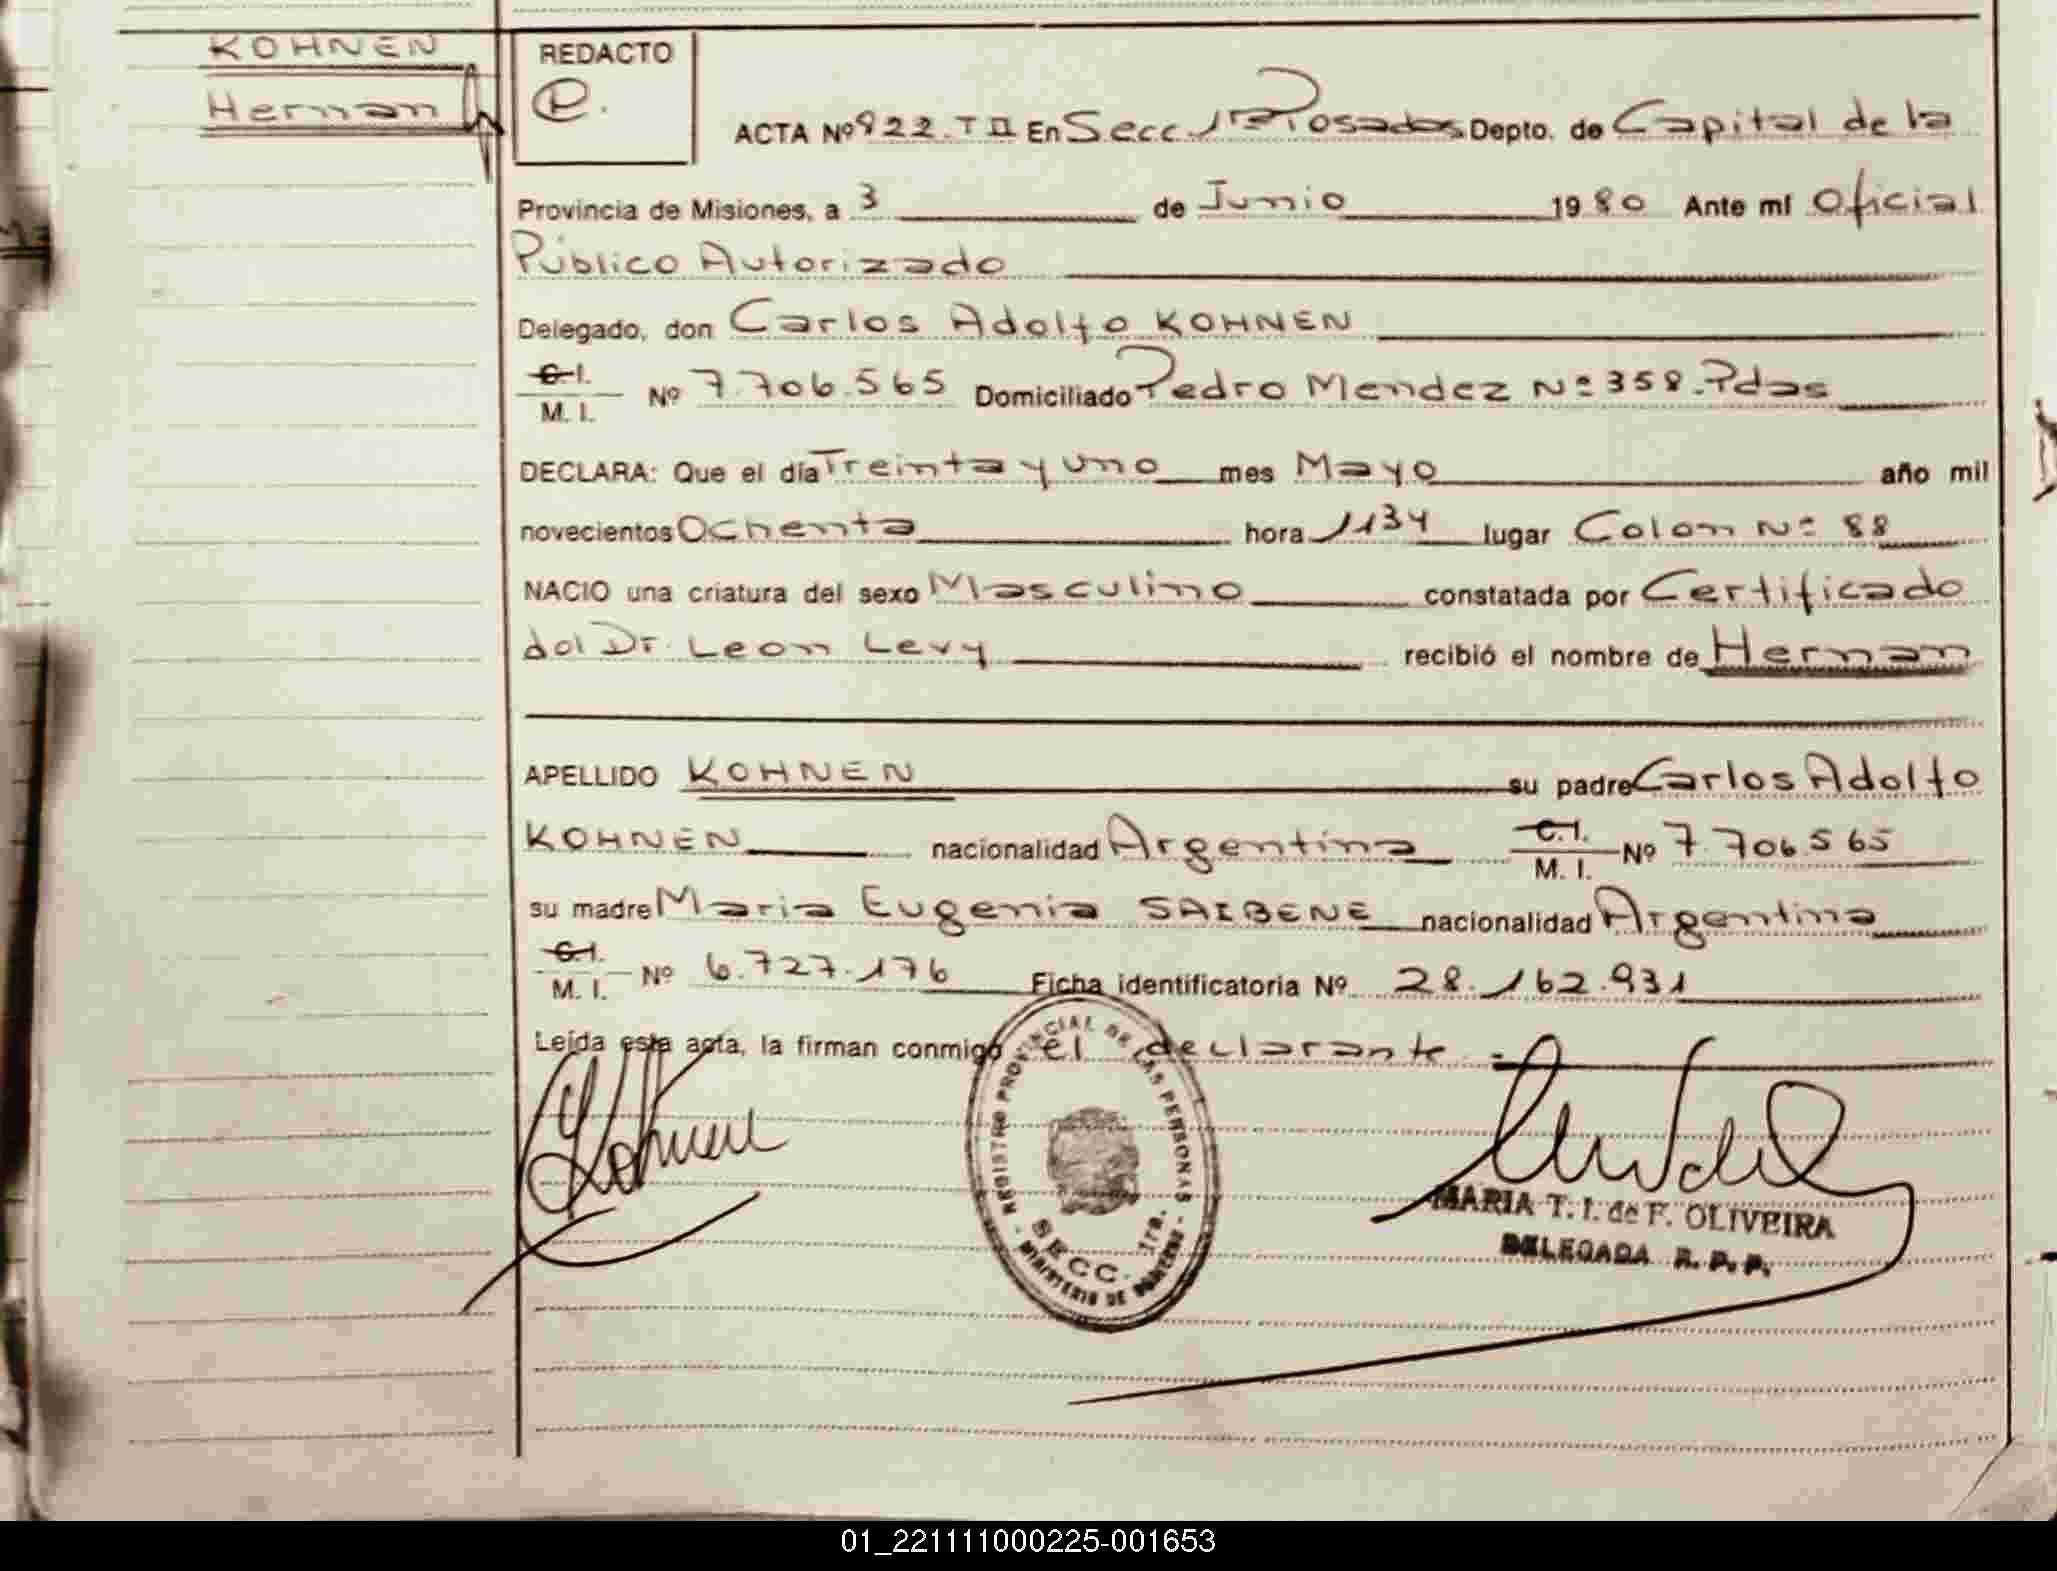 KOHNEN
Hernan
REDACTO
ACTA Nº 922. T II En Secc. 1ª Posadas Depto. de Capital de la
Provincia de Misiones, a 3 de Junio 1980 Ante mí Oficial
Público Autorizado
Delegado, don Carlos Adolfo KOHNEN
C.I.
M. I. Nº 7.706.565 Domiciliado Pedro Mendez Nº 358. Pdas
DECLARA: Que el día Treinta y uno mes Mayo año mil
novecientos Ochenta hora 1134 lugar Colon Nº 88
NACIO una criatura del sexo Masculino constatada por Certificado
del Dr. Leon Levy recibió el nombre de Hernan
APELLIDO KOHNEN su padre Carlos Adolfo
KOHNEN nacionalidad Argentina C.I. M. I. Nº 7.706.565
su madre Maria Eugenia SAIBENE nacionalidad Argentina
C.I.
M. I. Nº 6.727.176 Ficha identificatoria Nº 28.162.931
Leída esta acta, la firman conmigo el declarante.-
Kohnen
REGISTRO PROVINCIAL DE LAS PERSONAS
SECC. 1ra.
- MINISTERIO DE GOBIERNO -
MARIA T. I. de F. OLIVEIRA
DELEGADA R. P. P.
01_221111000225-001653